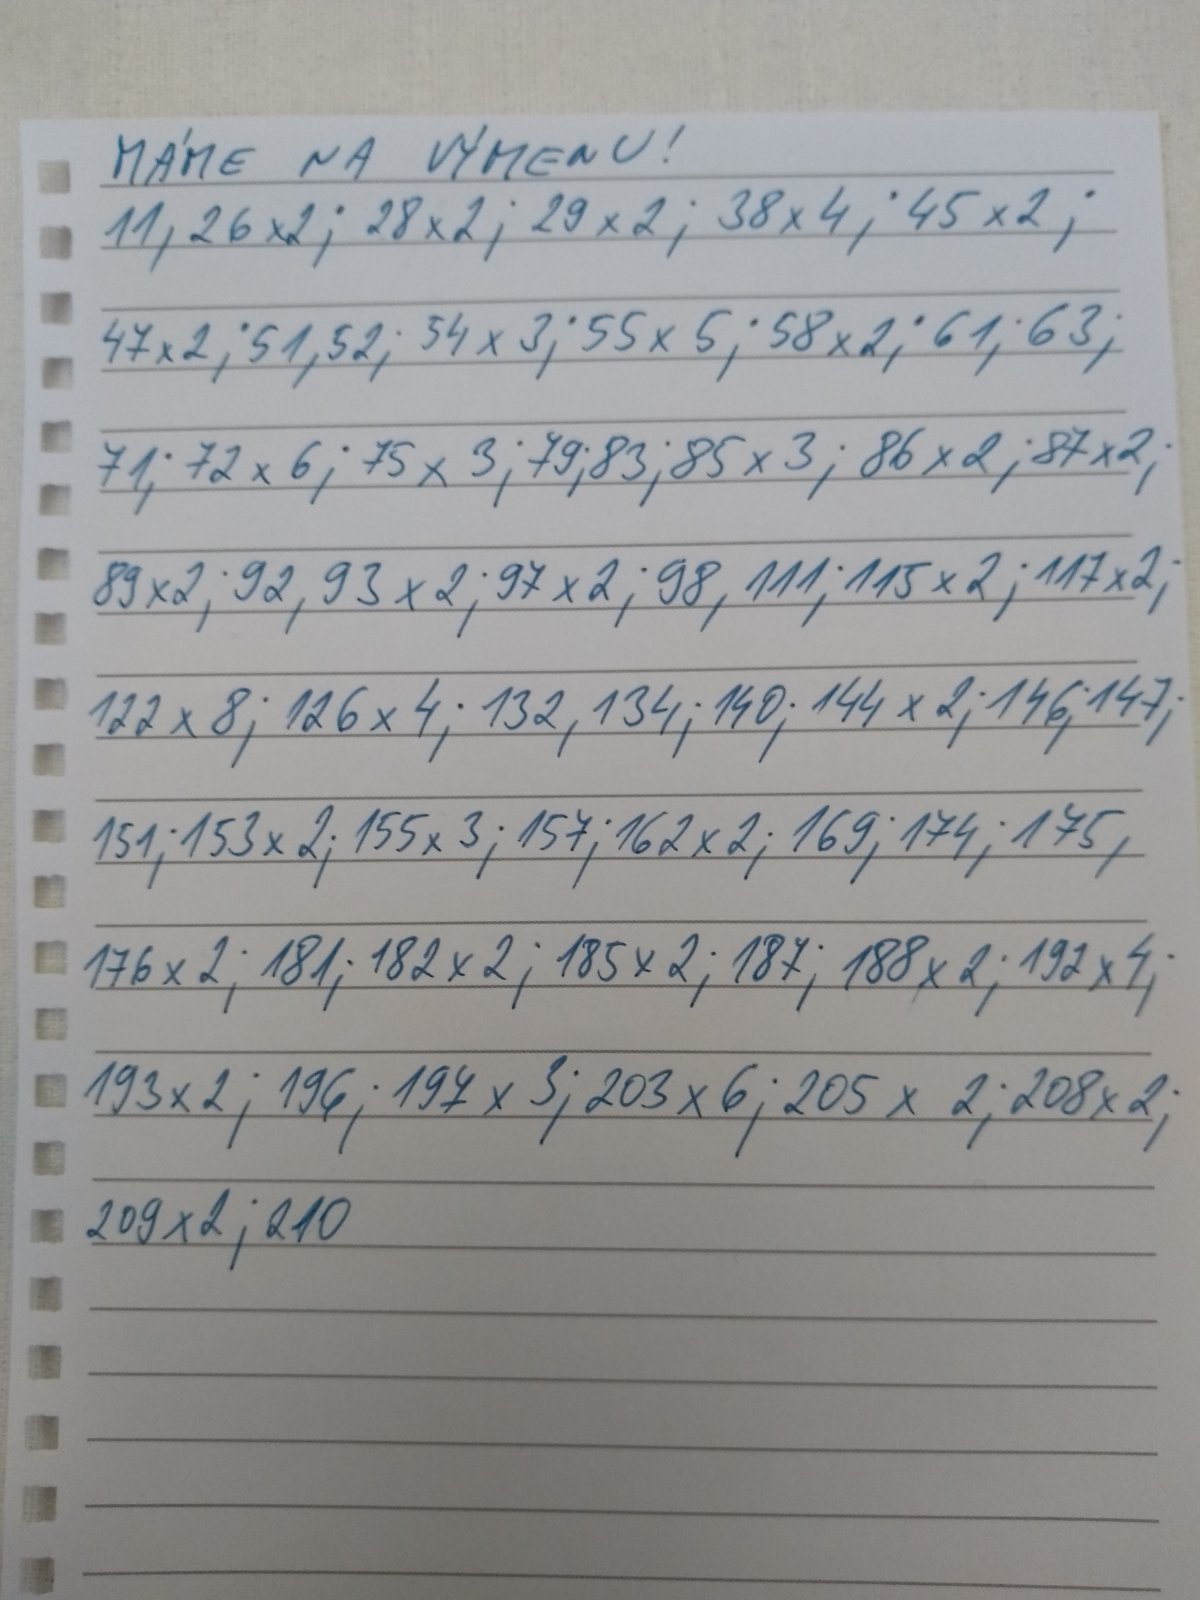 MÁME NA VÝMENU!
11, 26 x2; 28 x 2; 29 x 2; 38 x 4; 45 x 2;
47 x 2; 51, 52; 54 x 3; 55 x 5; 58 x 2; 61; 63;
71; 72 x 6; 75 x 3; 79; 83; 85 x 3; 86 x 2; 87 x 2;
89 x 2; 92, 93 x 2; 97 x 2; 98, 111; 115 x 2; 117 x 2;
122 x 8; 126 x 4; 132, 134; 140; 144 x 2; 146; 147;
151; 153 x 2; 155 x 3; 157; 162 x 2; 169; 174; 175,
176 x 2; 181; 182 x 2; 185 x 2; 187; 188 x 2; 192 x 4;
193 x 2; 196; 197 x 3; 203 x 6; 205 x 2; 208 x 2;
209 x 2; 210